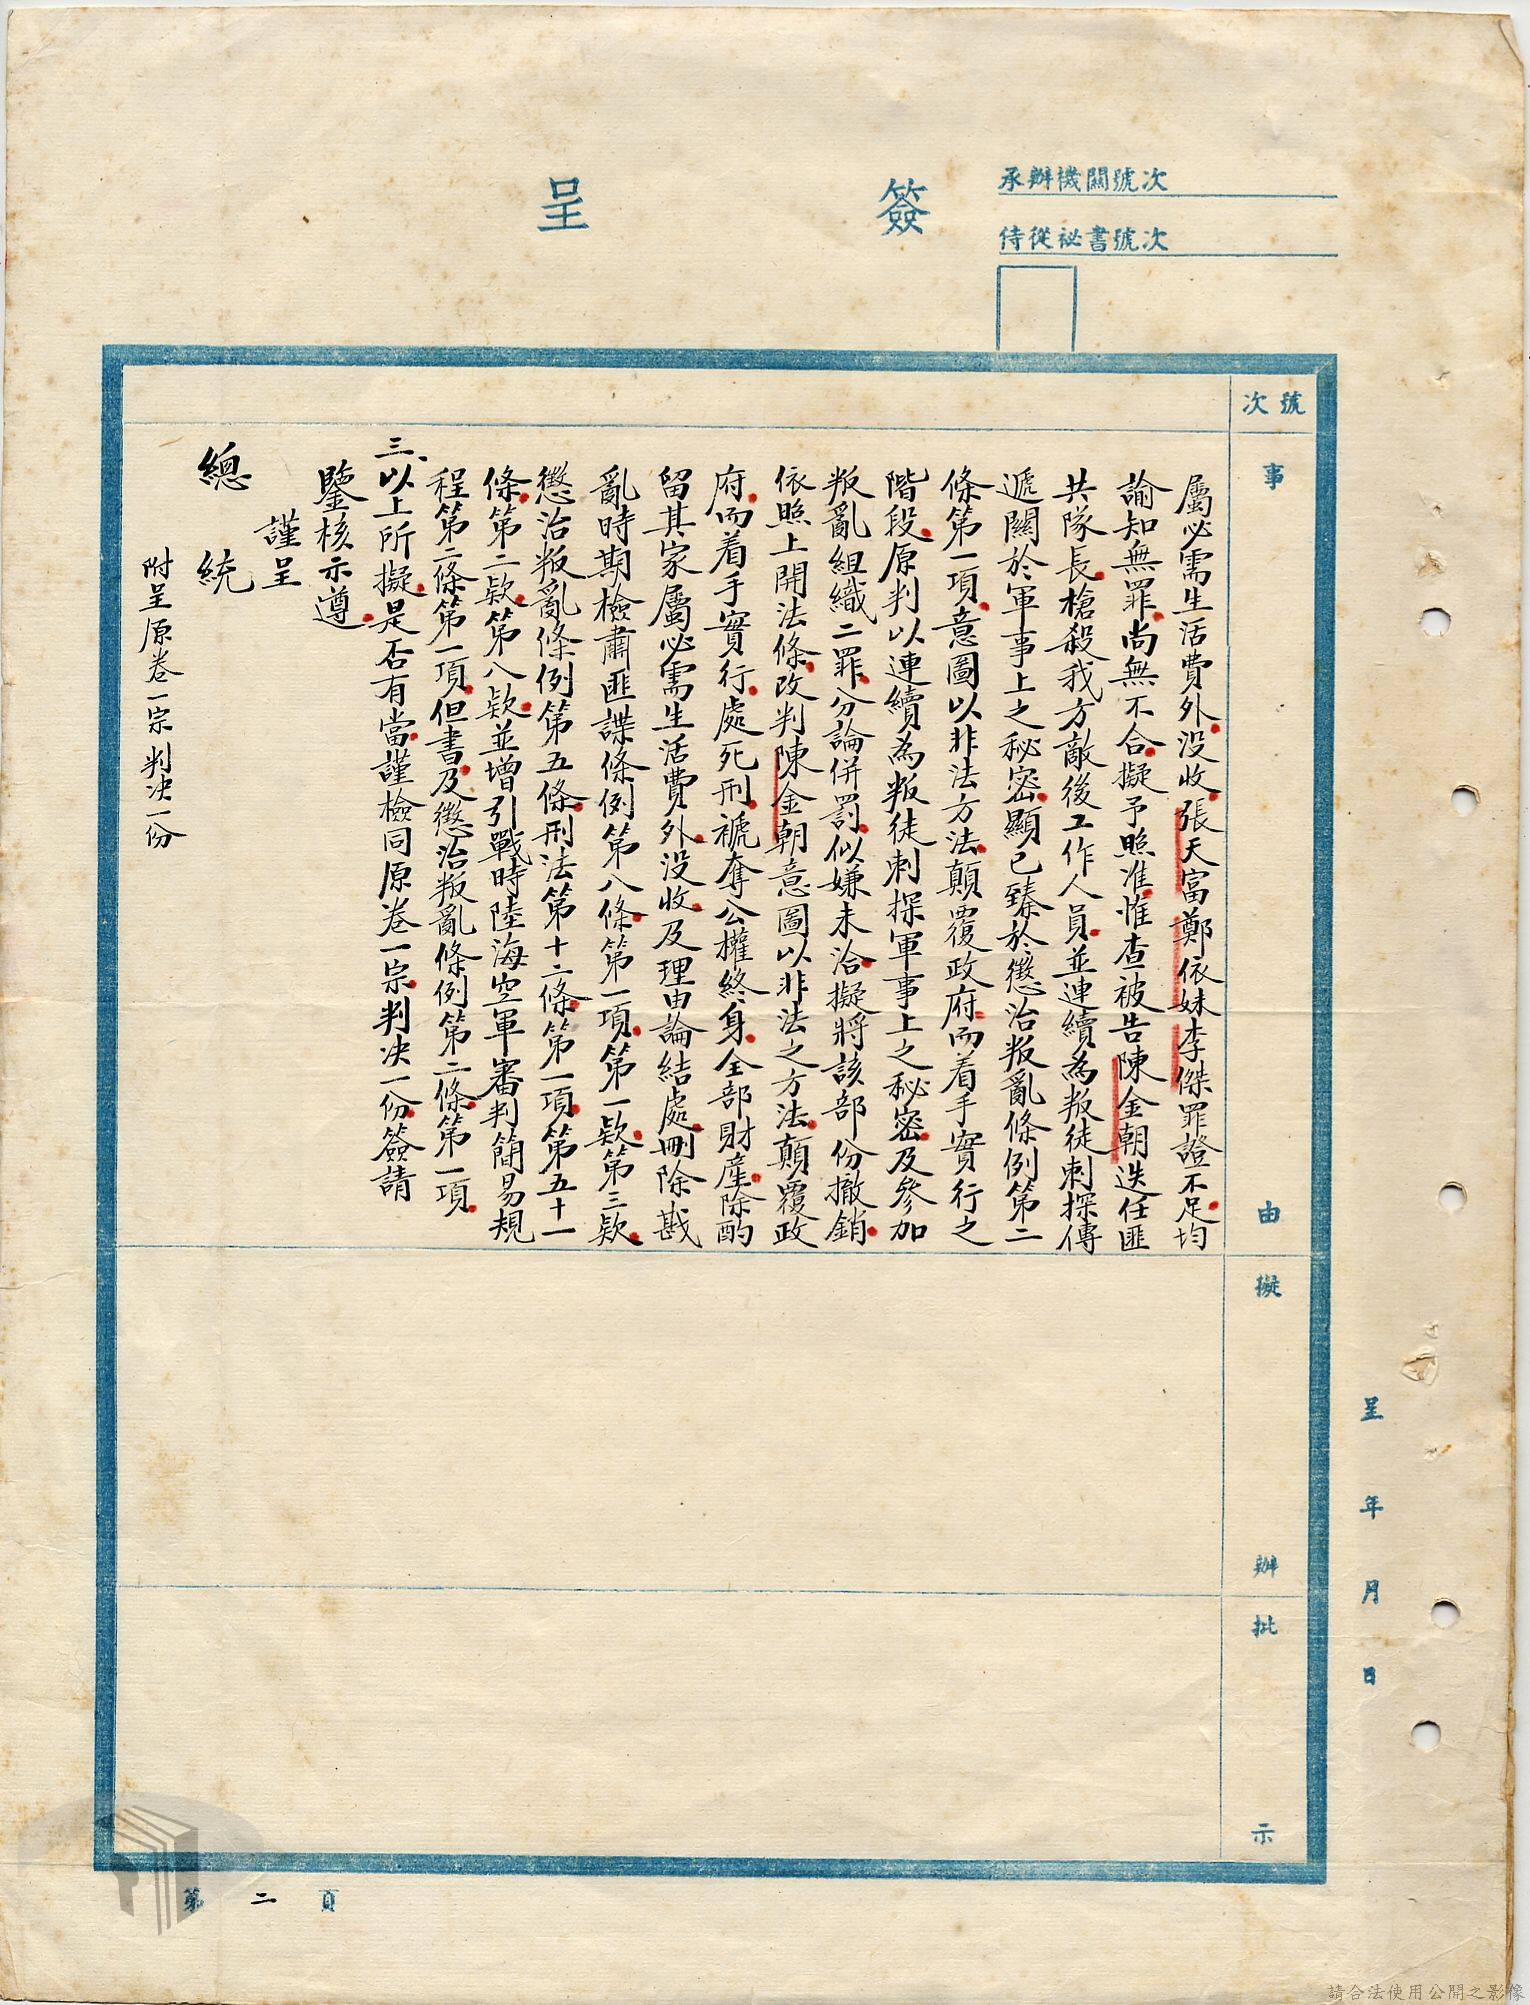 簽呈
承辦機關號次
侍從祕書號次
號次
事由
擬辦
批示
呈年月日
屬必需生活費外沒收張天富鄭依妹李傑罪證不足均
諭知無罪尚無不合擬予照准惟查被告陳金朝迭任匪
共隊長槍殺我方敵後工作人員並連續為叛徒刺探傳
遞關於軍事上之秘密顯已臻於懲治叛亂條例第二
條第一項意圖以非法方法顛覆政府而着手實行之
階段原判以連續為叛徒刺探軍事上之秘密及參加
叛亂組織二罪分論併罰似嫌未洽擬將該部份撤銷
依照上開法條改判陳金朝意圖以非法之方法顛覆政
府而着手實行處死刑褫奪公權終身全部財產除酌
留其家屬必需生活費外沒收及理由論結處刪除戡
亂時期檢肅匪諜條例第八條第一項第一款第三款
懲治叛亂條例第五條刑法第十二條第一項第五十一
條第二款第八款並增引戰時陸海空軍審判簡易規
程第二條第一項但書及懲治叛亂條例第二條第一項
三、以上所擬是否有當謹檢同原卷一宗判决一份簽請
鑒核示遵
謹呈
總統
附呈原卷一宗判决一份
第二頁
請合法使用公開之影像